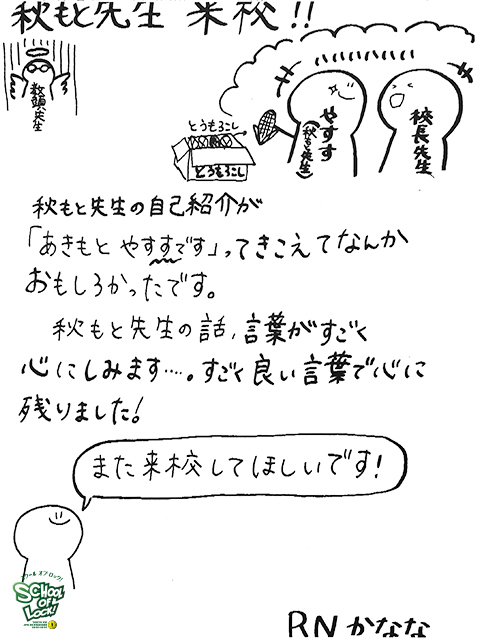 秋もと先生 来校!!
教頭先生
とうもろこし
とうもろこし
やすす
(秋もと先生)
校長先生
秋もと先生の自己紹介が
「あきもと やすすです」ってきこえてなんか
おもしろかったです。
秋もと先生の話、言葉がすごく
心にしみます‥‥。すごく良い言葉で心に
残りました!
また来校してほしいです!
スクール オブ ロック!
SCHOOL OF LOCK!
RN かなな